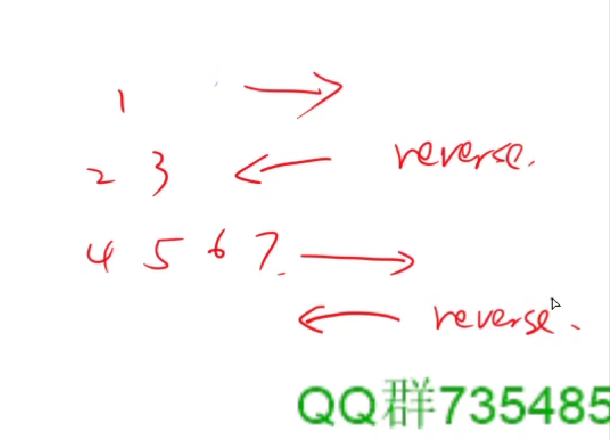 1 →
2 3 ← reverse.
4 5 6 7 →
← reverse.
QQ群735485